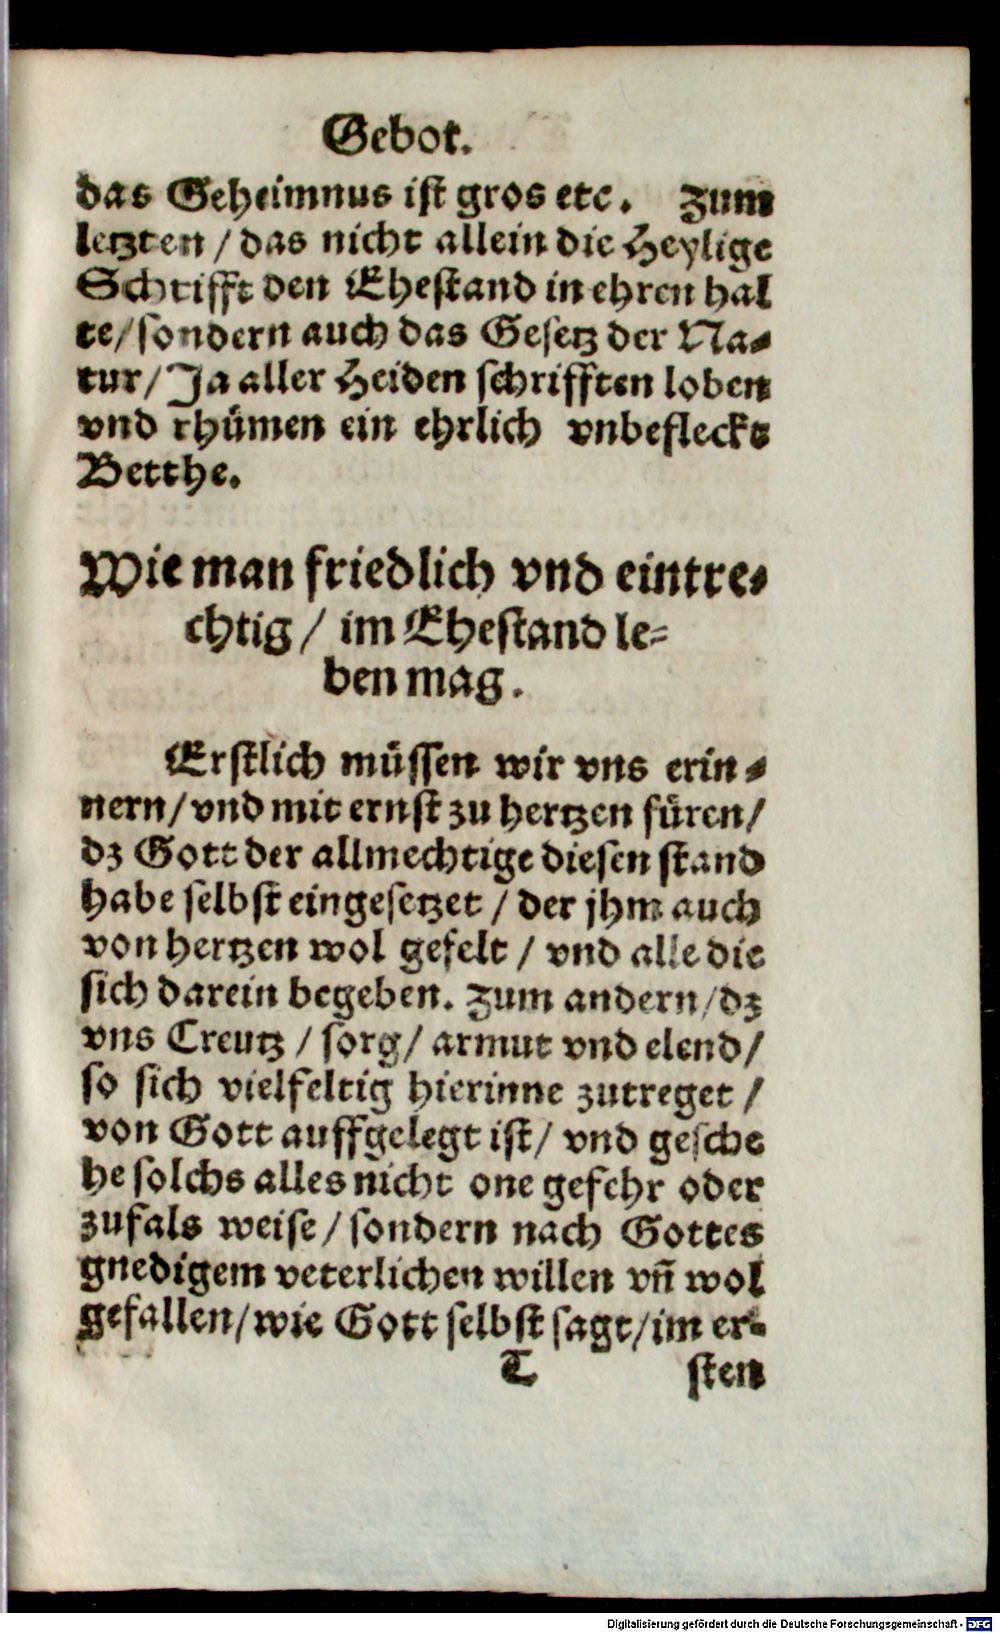 Gebot.
das Geheimnus ist gros etc. Zum
letzten / das nicht allein die Heylige
Schrifft den Ehestand in ehren hal
te / sondern auch das Gesetz der Na-
tur / Ja aller Heiden schrifften loben
vnd rhümen ein ehrlich vnbefleckt
Betthe.
Wie man friedlich vnd eintre-
chtig / im Ehestand le-
ben mag.
Erstlich müssen wir vns erin-
nern / vnd mit ernst zu hertzen füren /
dz Gott der allmechtige diesen stand
habe selbst eingesetzet / der jhm auch
von hertzen wol gefelt / vnd alle die
sich darein begeben. Zum andern / dz
vns Creutz / sorg / armut vnd elend /
so sich vielfeltig hierinne zutreget /
von Gott auffgelegt ist / vnd gesche
he solchs alles nicht one gefehr oder
zufals weise / sondern nach Gottes
gnedigem veterlichen willen vñ wol
gefallen / wie Gott selbst sagt / im er-
T sten
Digitalisierung gefördert durch die Deutsche Forschungsgemeinschaft - DFG